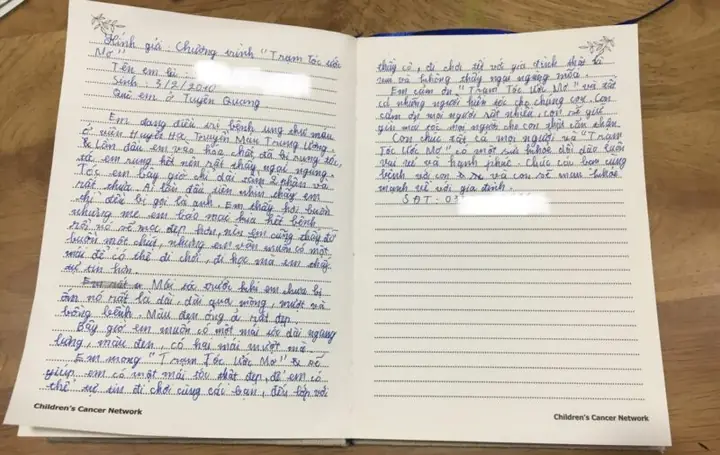 Kính gửi: Chương trình "Trạm Tóc ước
Mơ"
Tên em là :
Sinh : 3/2/2010
Quê em ở Tuyên Quang
Em đang điều trị bệnh ung thư máu
ở viện Huyết Học Truyền Máu Trung Ương.
Lần đầu em vào hóa chất đã bị rụng tóc,
tóc em rụng hết nên rất thấy ngại ngùng.
Tóc em bây giờ chỉ dài tầm 2 phân và
rất thưa. Ai lần đầu tiên nhìn thấy em
thì đều bị gọi là anh. Em thấy hơi buồn
nhưng mẹ em bảo mai kia hết bệnh
rồi nó sẽ mọc đẹp hơn, nên em cũng thấy đỡ
buồn một chút, nhưng em vẫn muốn có một
mái để có thể đi chơi, đi học mà em thấy
tự tin hơn.
Mái tóc trước khi em chưa bị
ốm nó rất là dài, dài qua mông, mượt và
bồng bềnh. Màu đen óng ả rất đẹp.
Bây giờ em muốn có một mái tóc dài ngang
lưng, màu đen, có hai mái mượt mà.
Em mong "Trạm Tóc Ước Mơ" sẽ
giúp em có một mái tóc thật đẹp, để em có
thể tự tin đi chơi cùng các bạn, đến lớp với
Children's Cancer Network
thầy cô, đi chơi tết với gia đình thật là
vui và không thấy ngại ngùng nữa.
Em cảm ơn "Trạm Tóc Ước Mơ" và tất
cả những người hiến tóc cho chúng con. Con
cảm ơn mọi người rất nhiều, con sẽ giữ
gìn mái tóc mọi người cho con thật cẩn thận.
Con chúc tất cả mọi người và "Trạm
Tóc Ước Mơ" có một sức khỏe dồi dào luôn
vui vẻ và hạnh phúc. Chúc các bạn cùng
bệnh với con và con sớm mau khỏe
mạnh về với gia đình.
SĐT: 03
Children's Cancer Network